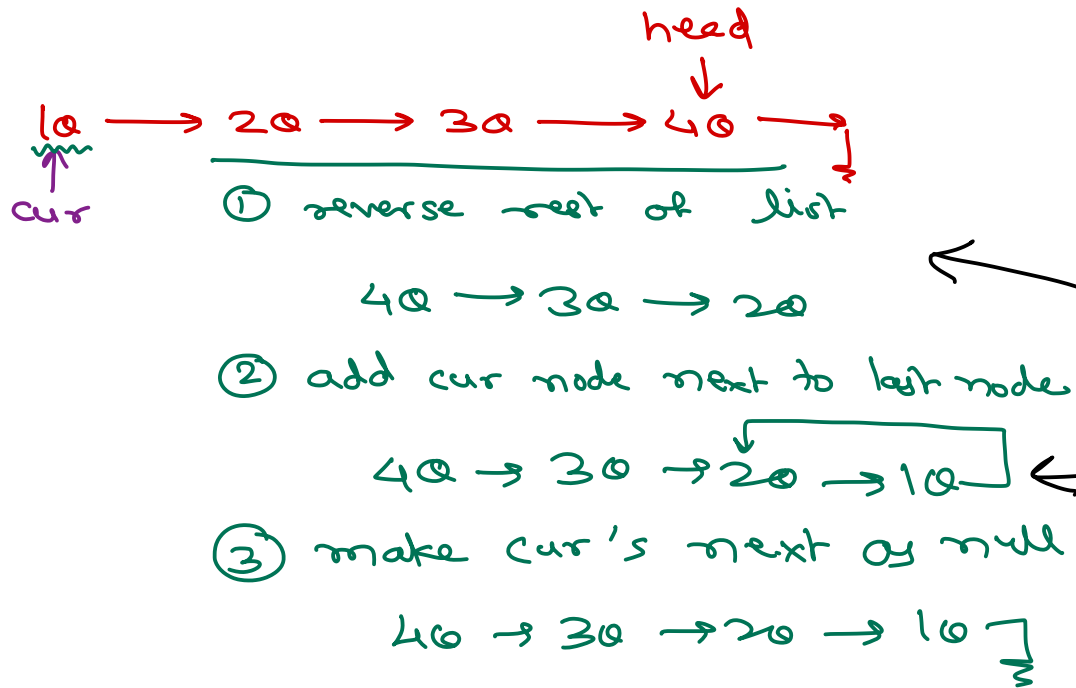 head
10 → 20 → 30 → 40 →
cur
① reverse rest of list
40 → 30 → 20
② add cur node next to last node
40 → 30 → 20 → 10
③ make cur's next as null
40 → 30 → 20 → 10